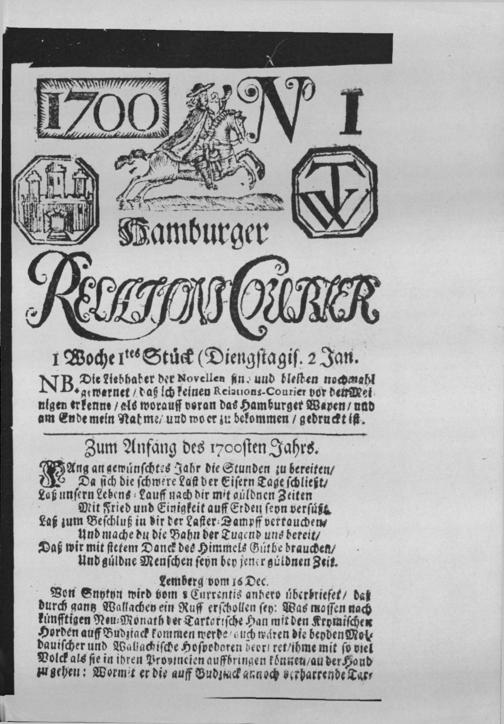 1700 No 1
TW
Hamburger
RELATIONS COURIER
1 Woche 1tes Stück (Diengstagis. 2 Jan.
NB. Die Liebhaber der Novellen sin. und bleiben nochmahl
gewarnet / daß ich keinen Relations-Courier vor den Mei-
nigen erkenne / als worauff voran das Hamburger Wapen / und
am Ende mein Nahme / und wo er zu bekommen / gedruckt ist.
Zum Anfang des 1700sten Jahrs.
FAng an gewünschtes Jahr die Stunden zu bereiten /
Da sich die schwere Last der Eisern Tage schließt /
Laß unsern Lebens-Lauff nach dir mit güldnen Zeiten
Mit Fried und Einigkeit auff Erden seyn versüßt.
Laß zum Beschluß in dir der Laster-Dampff verrauchen /
Und mache du die Bahn der Tugend uns bereit /
Daß wir mit stetem Danck des Himmels Güthe brauchen /
Und güldne Menschen seyn bey jener güldnen Zeit.
Lemberg vom 16 Dec.
Von Snytyn wird vom 8 Currentis anhero überbriefet / daß
durch gantz Wallachey ein Ruff erschollen sey: Was massen nach
künfftigen Neu-Monath der Tartarische Han mit den Krymischen
Horden auff Budziack kommen werde / auch wären die beyden Mol-
dauischer und Wallachische Hospodaren beordret / ihme mit so viel
Volck als sie in ihren Provincien auffbringen können / an der Hand
zu gehen: Wormit er die auff Budziack annoch verharrende Tar-